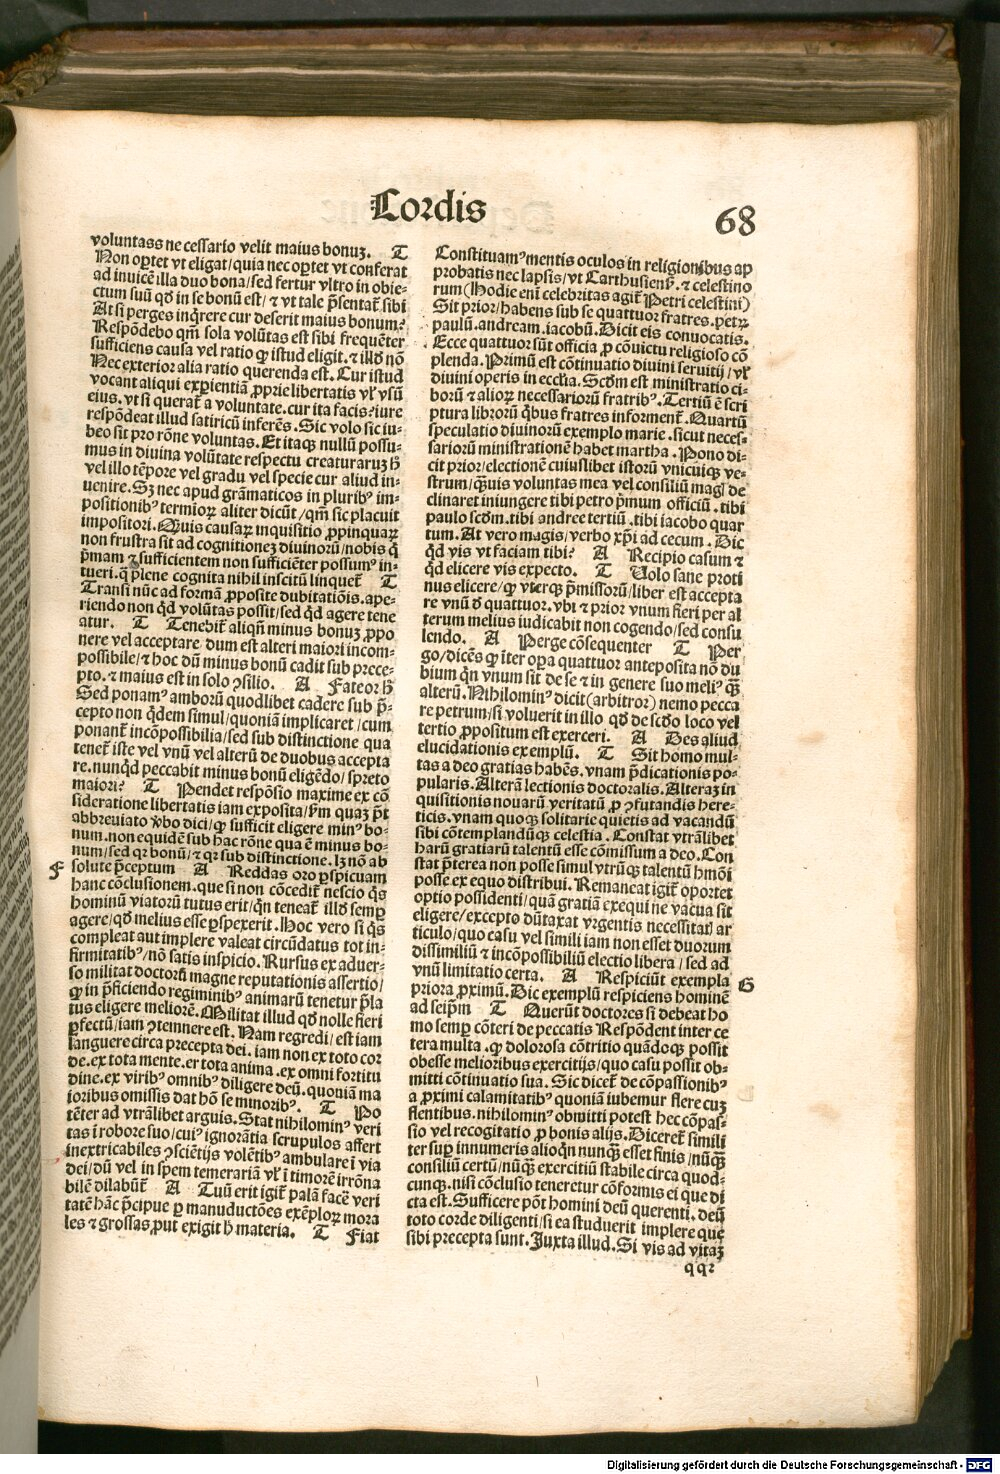 Cordis
68
voluntass ne cessario velit maius bonuꝫ. T
Non oꝑtet vt eligat/quia nec oꝑtet vt conferat
ad inuicē illa duo bona/sed fertur vltro in obie-
ctum suū qd̄ in se bonū est/ ⁊ vt tale p̄sentat᷑ sibi
At si perges inq̄rere cur deserit maius bonum?
Respōdebo qm̄ sola volūtas est sibi frequēter
sufficiens causa vel ratio ꝙ istud eligit.⁊ illd̄ nō
Nec exterior alia ratio querenda est. Cur istud
vocant aliqui experientiā ꝓprie libertatis vl̓ vsū
eius. vt si querat᷑ a voluntate.cur ita facis?iure
respōdeat illud satiricū inferēs. Sic volo sic iu-
beo sit pro rōne voluntas. Et itaqꝫ nullū possu-
mus in diuina volūtate respectu creaturaruꝫ h̄
vel illo tēpore vel gradu vel specie cur aliud in-
uenire. Sꝫ nec apud grāmaticos in pluribꝰ im-
positionibꝰ termioꝝ aliter dicūt/qm̄ sic placuit
impositori. Q̄uis causaꝝ inquisitio ꝓpinquaꝝ
non frustra sit ad cognitioneꝫ diuinorū/nobis q̄
p̄mam ⁊ sufficientem non sufficiēter possumꝰ in-
tueri.q̄ plene cognita nihil inscitū linquet᷑ T
Transi nūc ad formā ꝓposite dubitatiōis.ape-
riendo non qd̄ volūtas possit/sed qd̄ agere tene
atur. T Tenebit᷑ aliqn̄ minus bonuꝫ ꝓpo
nere vel acceptare dum est alteri maiori incom-
possibile/⁊ hoc dū minus bonū cadit sub prece-
pto.⁊ maius est in solo ꝯsilio. A Fateor h̄
Sed ponamꝰ amborū quodlibet cadere sub p̄-
cepto non q̄dem simul/quoniā implicaret/cum
ponant᷑ incōpossibilia/sed sub distinctione qua
tenet᷑ iste vel vnū vel alterū de duobus accepta
re.nunqd̄ peccabit minus bonū eligēdo/spreto
maiori? T Pendet respōsio maxime ex cō
sideratione libertatis iam exposita/km̄ quaꝫ p̄t
abbreuiato v̓bo dici/ꝙ sufficit eligere minꝰ bo-
num.non equidē sub hac rōne qua ē minus bo-
num/sed qꝛ bonū/⁊ qꝛ sub distinctione.lꝫ nō ab
F
solute p̄ceptum A Reddas oro ꝑspicuam
hanc cōclusionem.que si non cōcedit᷑ nescio q̄s
hominū viatorū tutus erit/qn̄ teneat᷑ illd̄ semꝑ
agere/qd̄ melius esse ꝑspexerit.Hoc vero si q̄s
compleat aut implere valeat circūdatus tot in-
firmitatibꝰ/nō satis inspicio. Rursus ex aduer-
so militat doctorū magne reputationis assertio/
ꝙ in p̄ficiendo regiminibꝰ animarū tenetur p̄la
tus eligere meliorē. Militat illud qd̄ nolle fieri
ꝑfectū/iam ꝯtemnere est. Nam regredi/est iam
languere circa precepta dei. iam non ex toto cor
de.ex tota mente.er tota anima.ex omni fortitu
dine.ex viribꝰ omnibꝰ diligere deū.quoniā ma
ioribus omissis dat hō se minoribꝰ. T Po
tēter ad vtrālibet arguis. Stat nihilominꝰ veri
tas ī robore suo/cuiꝰ ignorātia scrupulos affert
inextricabiles ꝯsciētijs volētibꝰ ambulare ī via
dei/dū vel in spem temerariā vl̓ ī timorē irrōna
bilē dilabūt᷑ A Tuū erit igit᷑ palā facē veri
tatē hāc p̄cipue ꝑ manuductōes exēploꝝ mora
les ⁊ grossas ꝓut exigit h̄ materia. T Fiat
Constituamꝰ mentis oculos in religionibus ap
probatis nec lapsis/vt Carthusienꝭ. ⁊ celestino
rum(Hodie enī celebritas agit᷑ Petri celestini)
Sit prior/habens sub se quattuor fratres.petꝝ
paulū.andream.iacobū.Dicit eis conuocatis.
Ecce quattuor sūt officia ꝓ cōuictu religioso cō
plenda. Primū est cōtinuatio diuini seruitij/vl̓
diuini operis in eccl̓ia. Scd̄m est ministratio ci-
borū ⁊ alioꝝ necessariorū fratribꝰ. Tertiū ē scri
ptura librorū q̄bus fratres informent᷑.Quartū
speculatio diuinorū exemplo marie.sicut neces-
sariorū ministrationē habet martha. Pono di-
cit prior/electionē cuiuslibet istorū vnicuiqꝫ ve-
strum/q̄uis voluntas mea vel consiliū magꝭ de
clinaret iniungere tibi petro p̄mum officiū.tibi
paulo scd̄m.tibi andree tertiū.tibi iacobo quar
tum. At vero magis/verbo xp̄i ad cecum. Dic
qd̄ vis vt faciam tibi? A Recipio casum ⁊
qd̄ elicere vis expecto. T Volo sane proti
nus elicere/ꝙ vterqꝫ p̄missorū/liber est accepta
re vnū d̓ quattuor.vbi ⁊ prior vnum fieri per al
terum melius iudicabit non cogendo/sed consu
lendo. A Perge cōsequenter T Per
go/dicēs ꝙ īter oꝑa quattuor anteposita nō du
bium qn̄ vnum sit de se ⁊ in genere suo meliꝰ q̄ꝫ
alterū.Nihilominꝰ dicit(arbitror) nemo pecca
re petrum/si voluerit in illo qd̄ de scd̄o loco vel
tertio ꝓpositum est exerceri. A Des aliud
elucidationis exemplū. T Sit homo mul-
tas a deo gratias habēs.vnam p̄dicationis po-
pularis. Alterā lectionis doctoralis. Alteraꝫ in
quisitionis nouarū veritatū ꝓ ꝯfutandis here-
ticis.vnam quoqꝫ solitarie quietis ad vacandū
sibi cōtemplandūqꝫ celestia. Constat vtrālibet
harū gratiarū talentū esse cōmissum a deo. Con
stat p̄terea non posse simul vtrūqꝫ talentū hmōi
posse ex equo distribui. Remaneat igit᷑ oportet
optio possidenti/quā gratiā exequi ne vacua sit
eligere/excepto dūtaxat vrgentis necessitatꝭ ar
ticulo/quo casu vel simili iam non esset duorum
dissimiliū ⁊ incōpossibiliū electio libera/sed ad
vnū limitatio certa. A Respiciūt exempla
G
priora ꝓximū.Dic exemplū respiciens hominē
ad seip̄m T Querūt doctores si debeat ho
mo semꝑ cōteri de peccatis Respōdent inter ce
tera multa.ꝙ dolorosa cōtritio quādoqꝫ possit
obesse melioribus exercitijs/quo casu possit ob-
mitti cōtinuatio sua. Sic dicet᷑ de cōpassionibꝰ
a ꝓximi calamitatibꝰ quoniā iubemur flere cuꝫ
flentibus.nihilominꝰ obmitti potest hec cōpas-
sio vel recogitatio ꝓ bonis alijs.Diceret᷑ simili
ter suꝑ innumeris alioqn̄ nunqꝫ esset finis/nūqꝫ
consiliū certū/nūqꝫ exercitiū stabile circa quod-
cunqꝫ.nisi cōclusio teneretur cōformis ei que di
cta est.Sufficere pōt homini deū querenti.deū
toto corde diligenti/si ea studuerit implere que
sibi precepta sunt. Juxta illud. Si vis ad vitaꝫ
qqꝛ
Digitalisierung gefördert durch die Deutsche Forschungsgemeinschaft - DFG